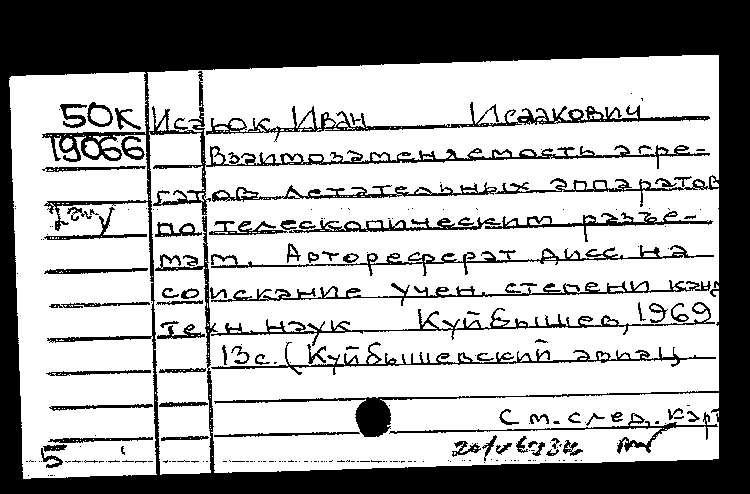 50к Исаюк, Иван Исаакович
19066 Взаимозаменяемость агре-
гатов летательных аппаратов
по телескопическим разъе-
мам. Автореферат дисс. на
соискание учен. степени канд
техн. наук. Куйбышев, 1969.
13с. (Куйбышевский авиац.
См. след. карт
5